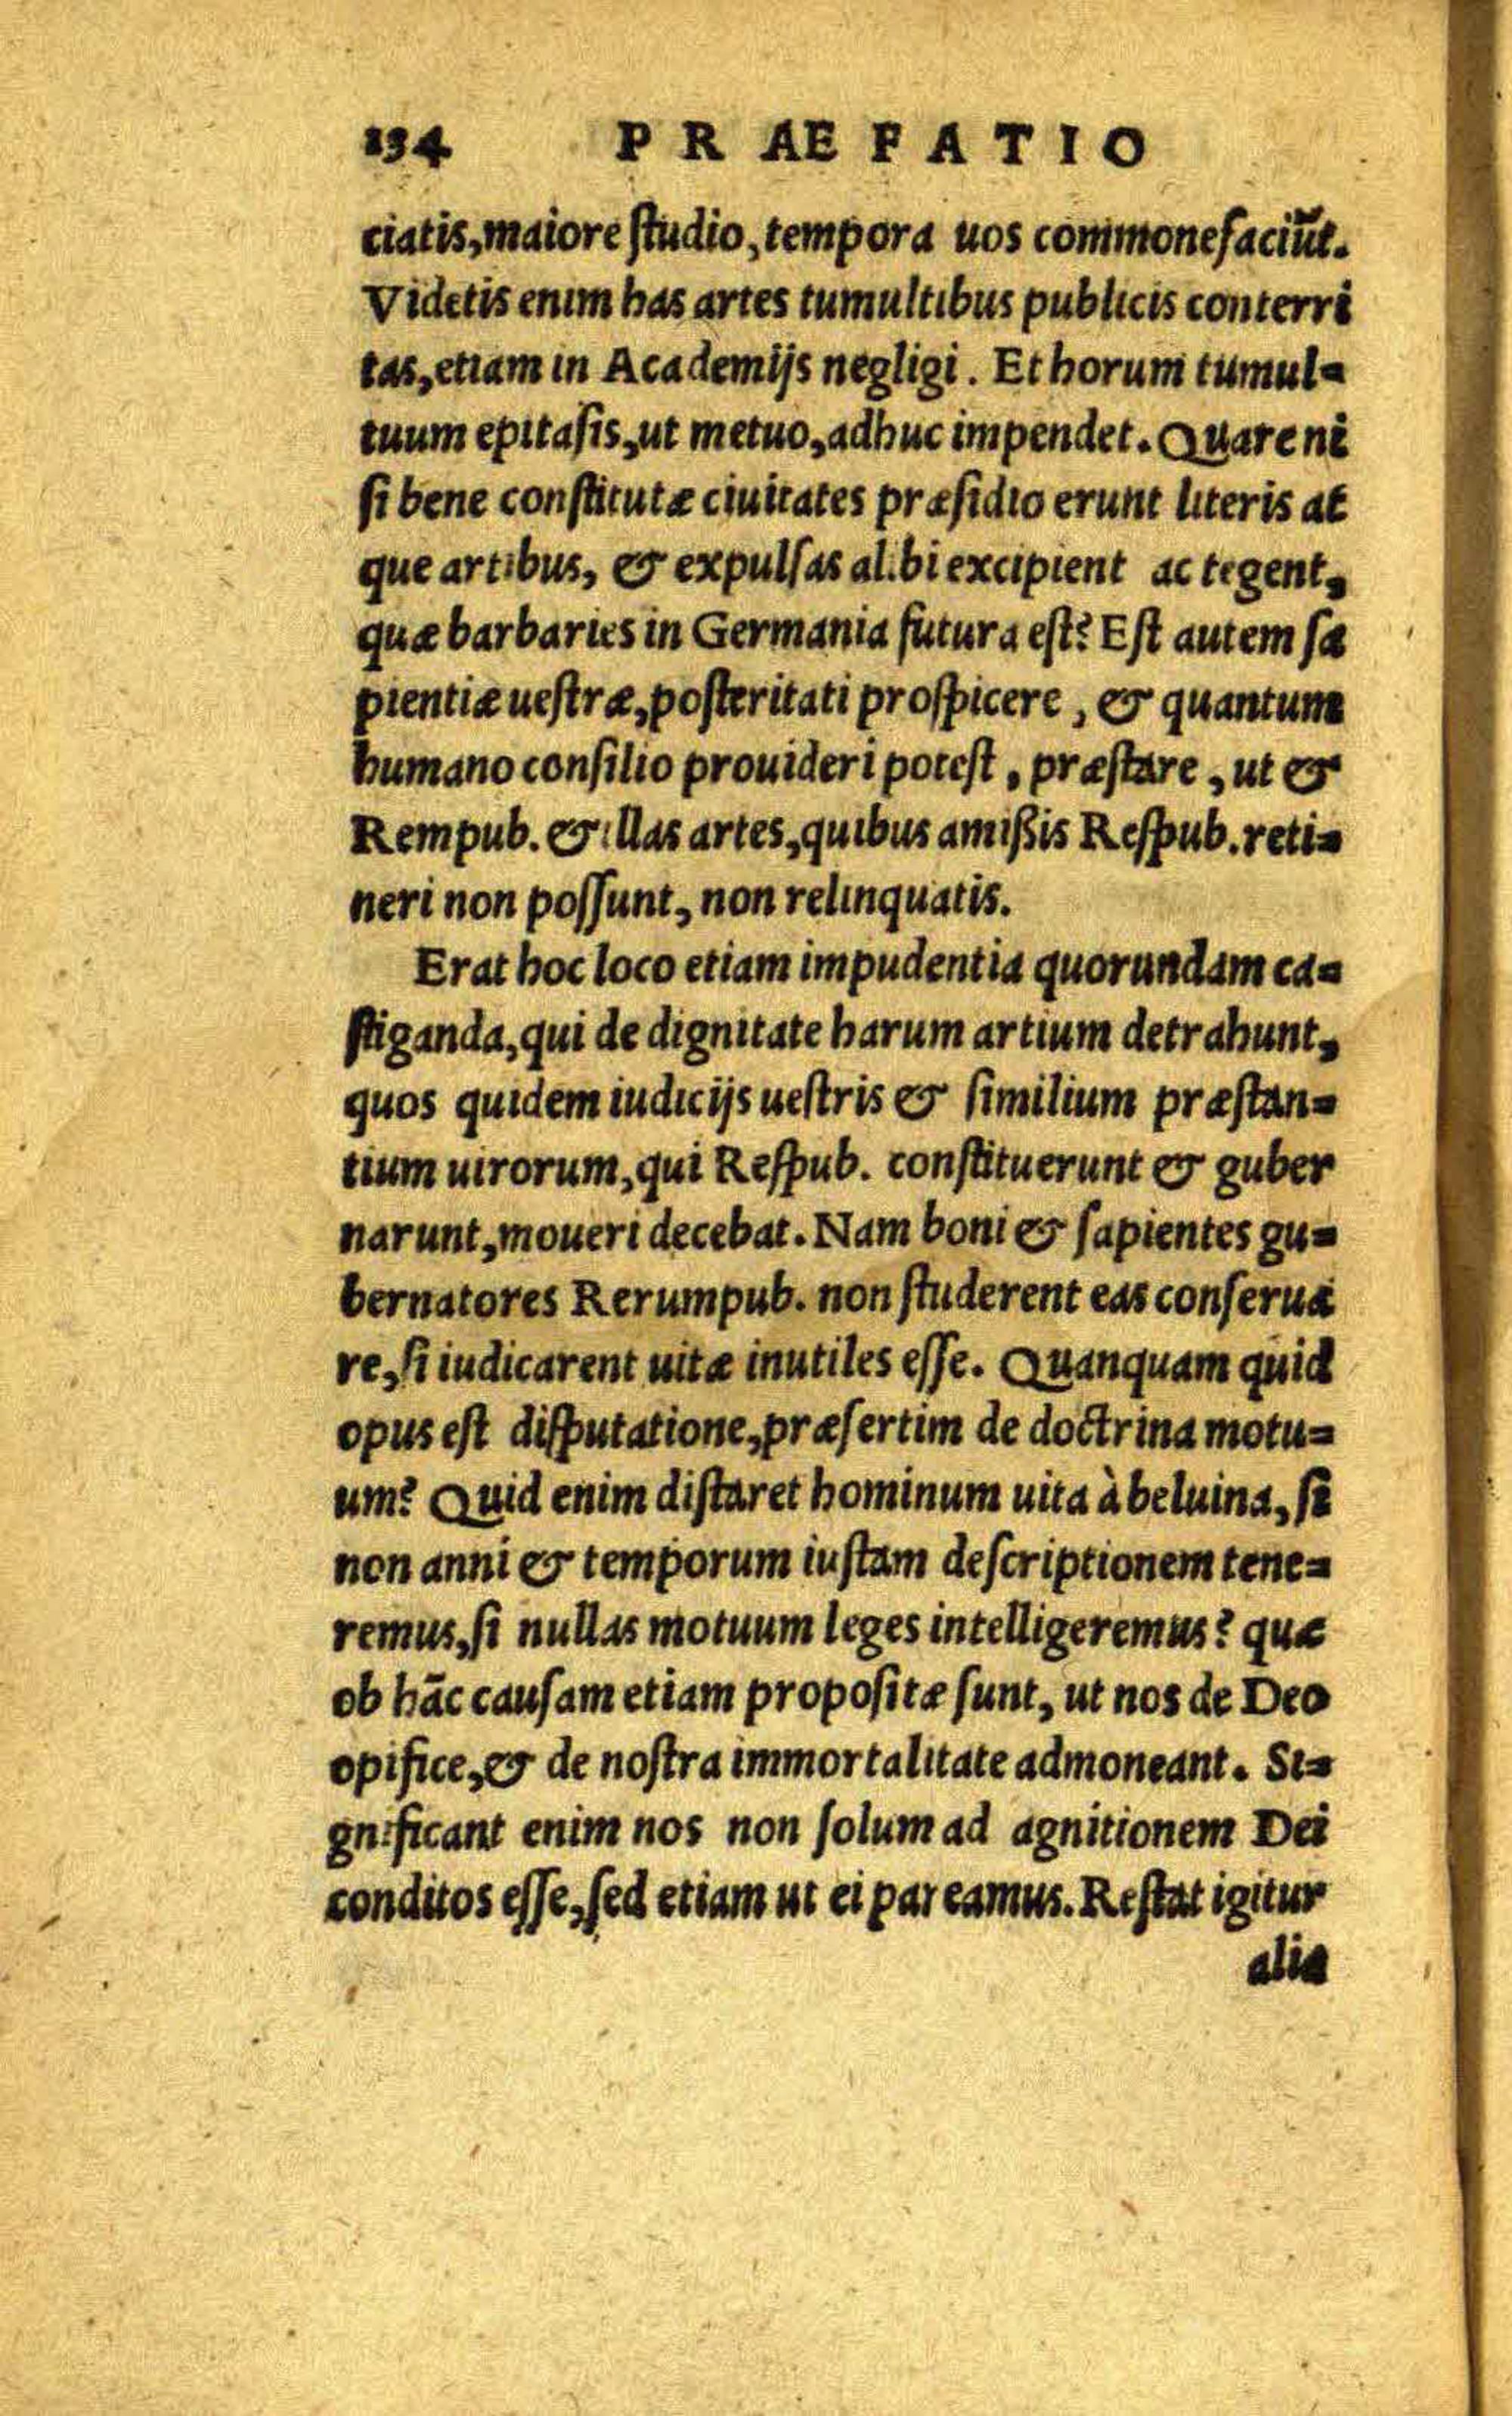 134 PRAEFATIO
ciatis, maiore ſtudio, tempora uos commonefaciũt.
Videtis enim has artes tumultibus publicis conterri
tas, etiam in Academijs negligi. Et horum tumul=
tuum epitaſis, ut metuo, adhuc impendet. Quare ni
ſi bene conſtitutæ ciuitates præſidio erunt literis at
que artibus, & expulſas alibi excipient ac tegent,
quæ barbaries in Germania futura eſt? Eſt autem ſa
pientiæ ueſtræ, poſteritati proſpicere, & quantum
humano conſilio prouideri poteſt, præſtare, ut &
Rempub. & illas artes, quibus amißis Reſpub. reti=
neri non poſſunt, non relinquatis.
Erat hoc loco etiam impudentia quorundam ca=
ſtiganda, qui de dignitate harum artium detrahunt,
quos quidem iudicijs ueſtris & ſimilium præſtan=
tium uirorum, qui Reſpub. conſtituerunt & guber
narunt, moueri decebat. Nam boni & ſapientes gu=
bernatores Rerumpub. non ſtuderent eas conſerua
re, ſi iudicarent uitæ inutiles eſſe. Quanquam quid
opus eſt diſputatione, præſertim de doctrina motu=
um? Quid enim diſtaret hominum uita à beluina, ſi
non anni & temporum iuſtam deſcriptionem tene=
remus, ſi nullas motuum leges intelligeremus? quæ
ob hãc cauſam etiam propoſitæ ſunt, ut nos de Deo
opifice, & de noſtra immortalitate admoneant. Si=
gnificant enim nos non ſolum ad agnitionem Dei
conditos eſſe, ſed etiam ut ei pareamus. Reſtat igitur
alia